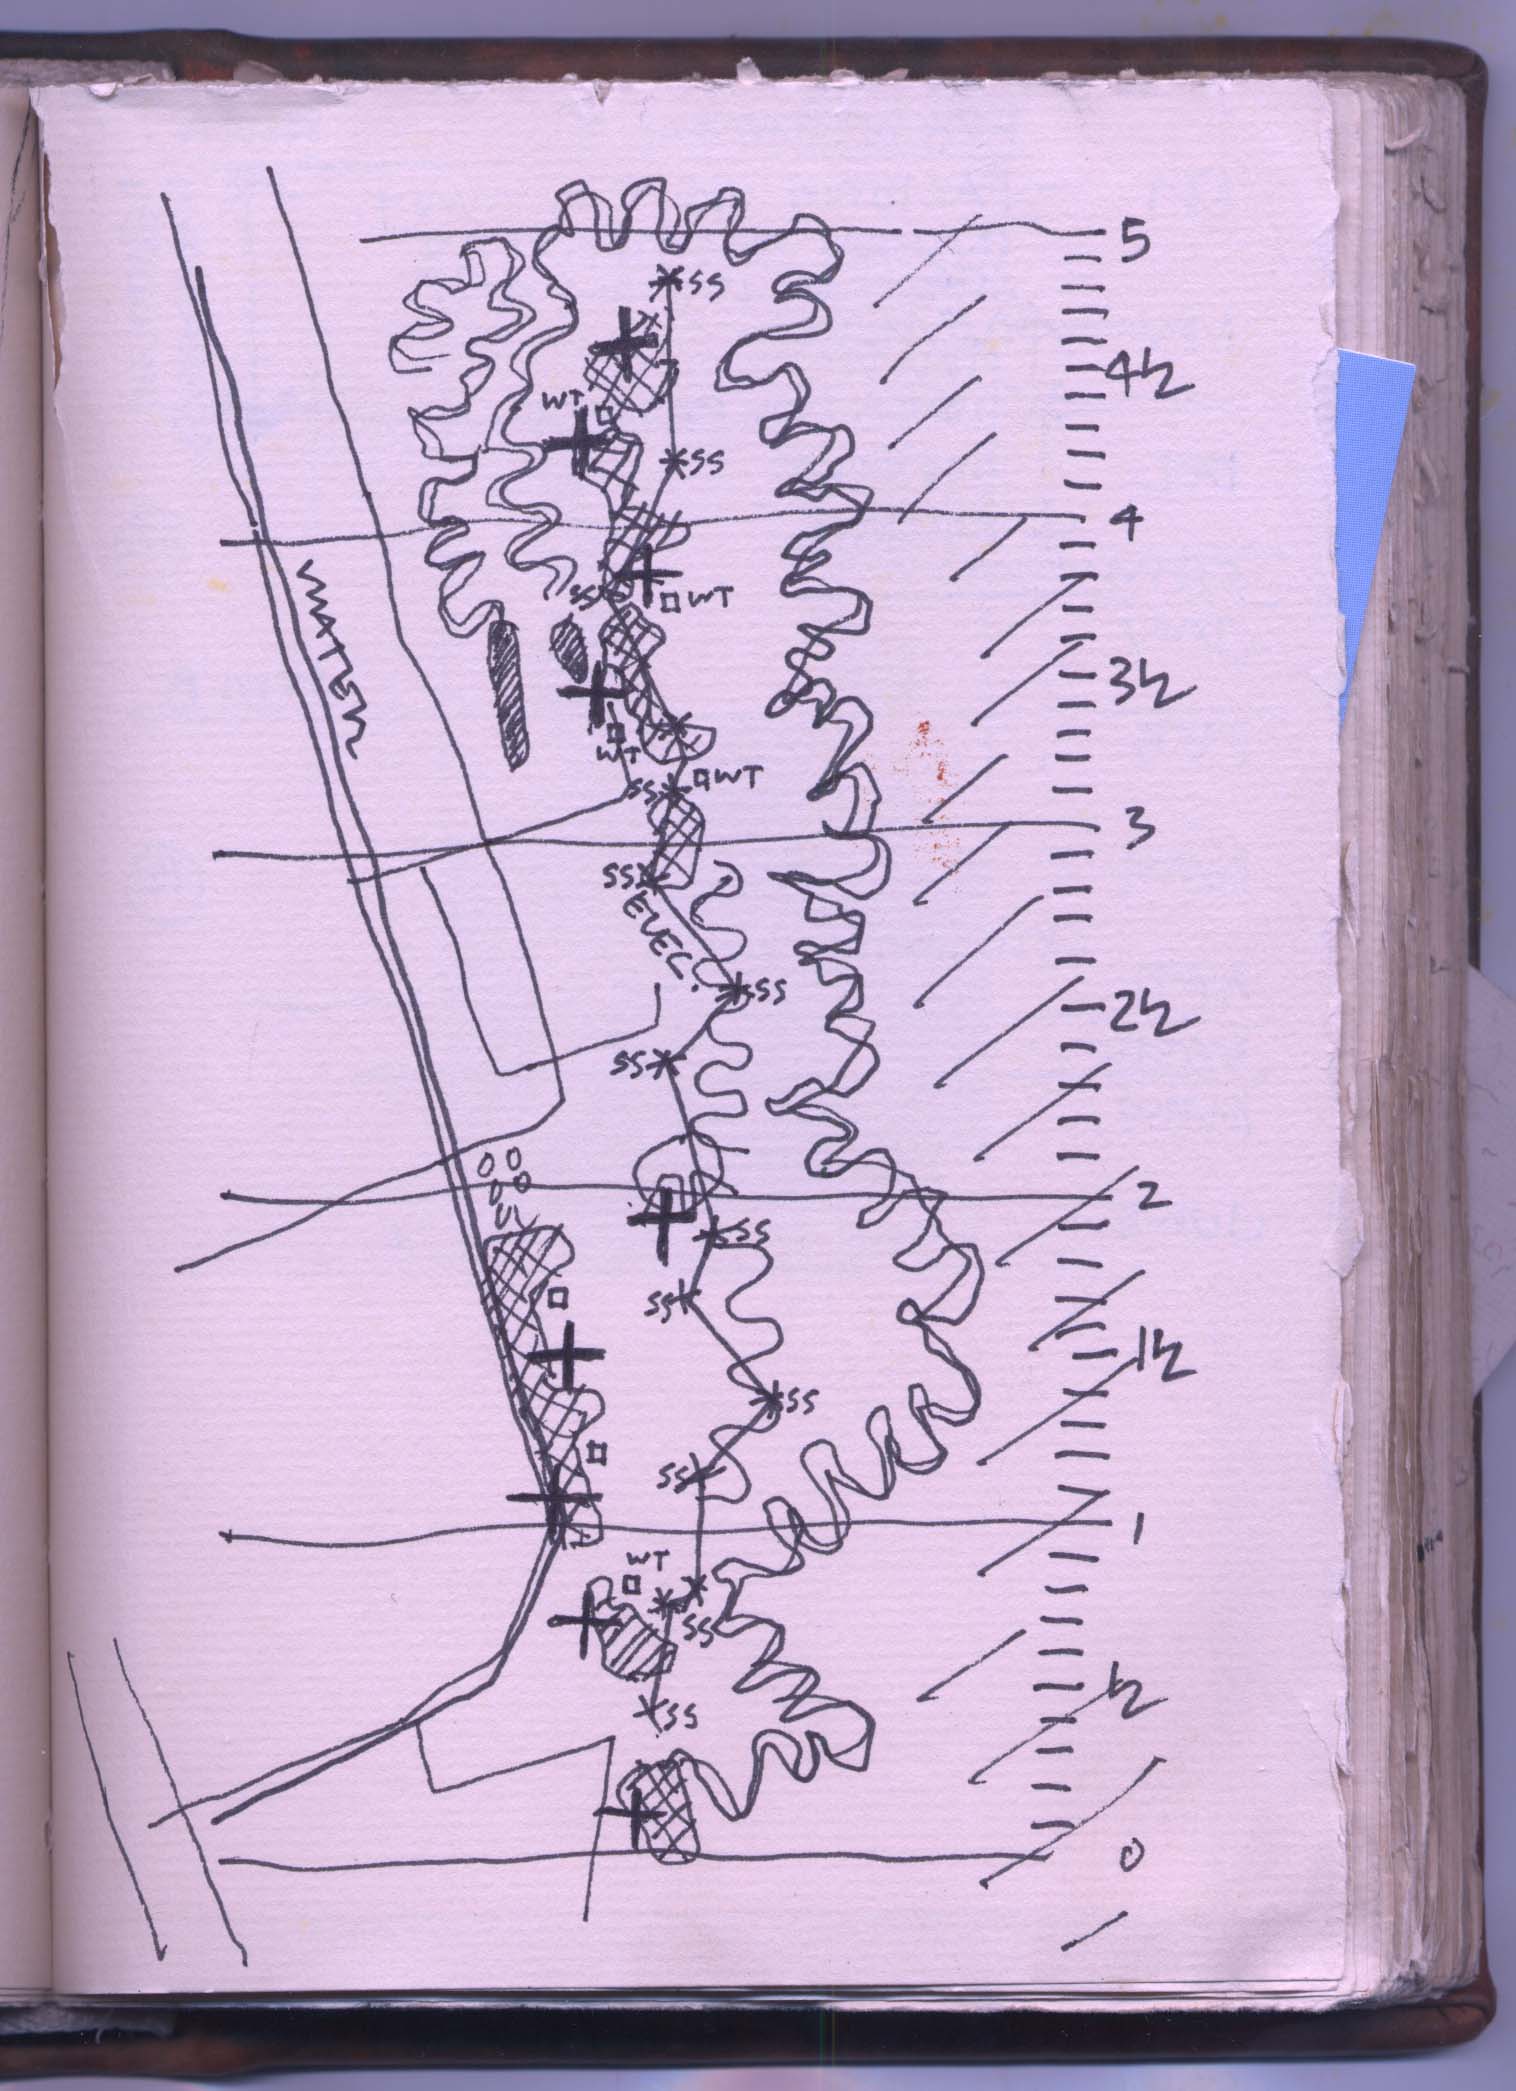 5
SS
4½
WT
SS
4
SS
WT
WATER
3½
WT
SS
WT
3
SS
ELEC.
SS
2½
SS
2
SS
SS
1½
SS
SS
1
WT
SS
½
SS
0